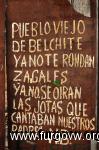 PUEBLO VIEJO
DE BELCHITE
YA NO TE RONDAN
ZAGALES
YA NO SE OIRAN
LAS JOTAS QUE
CANTABAN NUESTROS
PADRES
www.furgovw.org